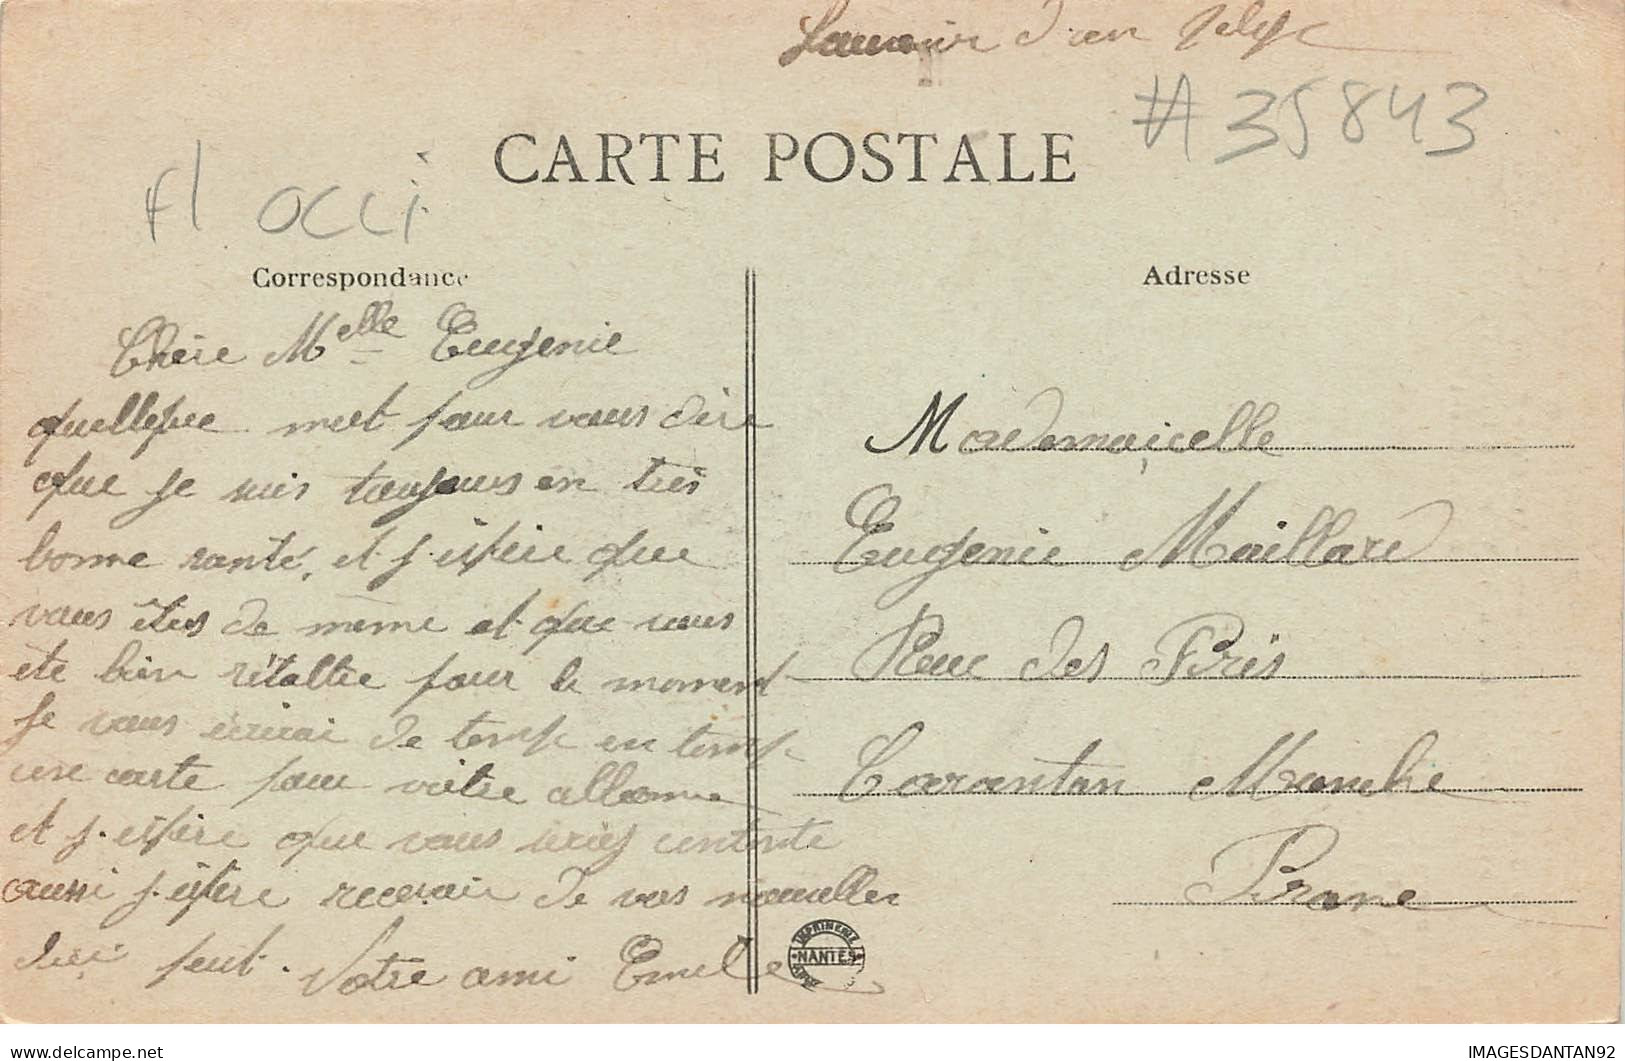 Souvenir d'un
#35843
CARTE POSTALE
OCCI
Correspondance
Adresse
Chère Melle Eugenie
quellque mot pour vous dire
que je suis toujours en très
bonne santé, et j'espère que
vous êtes de même et que vous
ete bien rétablie pour le moment
Je vous écrirai de temp en temp
une carte pour votre
et j'espère que vous serez contente
aussi j'espère recevoir de vos nouvelles
d'ici peut. Votre ami Emile
Mademoiselle
Eugenie Maillard
Rue des Prés
Carantan Manche
France
IMPRIMERIE
NANTES
IMAGESDANTAN92
delcampe.net